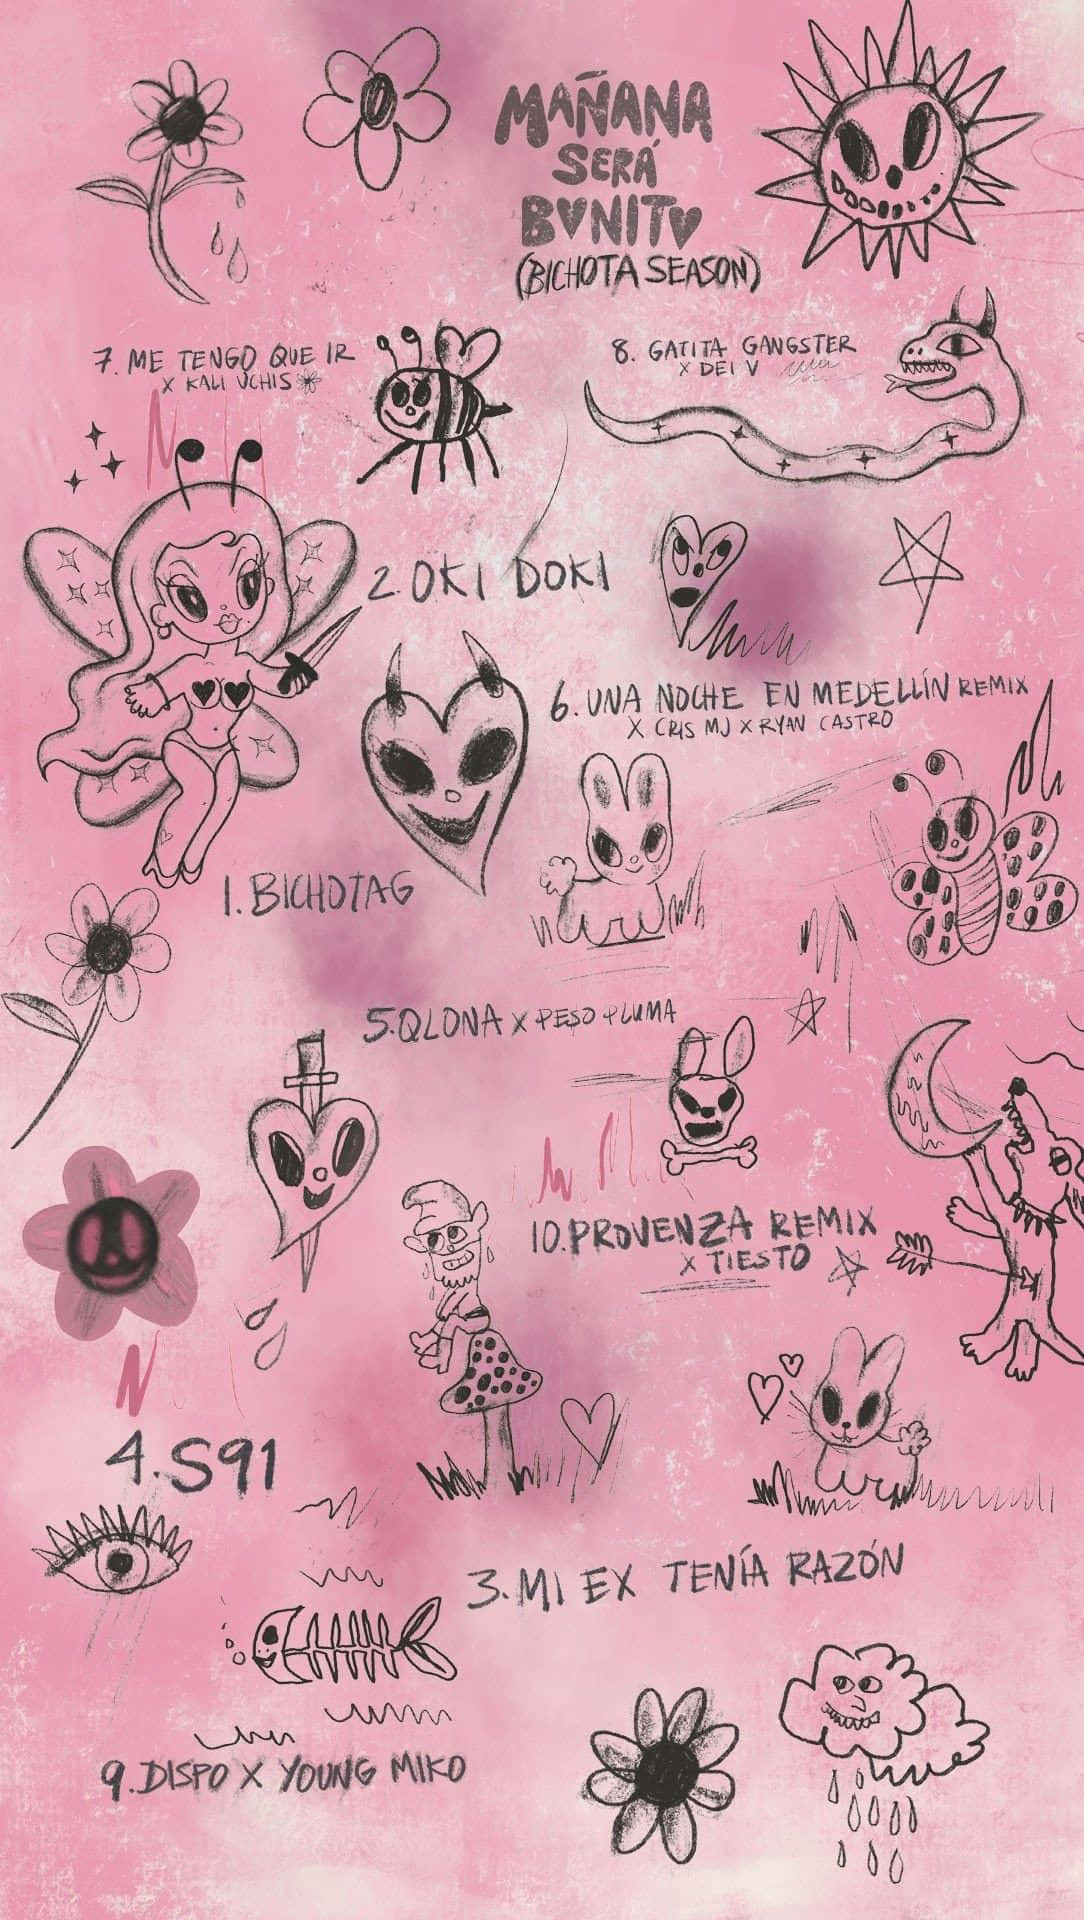 MAÑANA
SERÁ
BONITO
(BICHOTA SEASON)
7. ME TENGO QUE IR
X KALI UCHIS
8. GATITA GANGSTER
X DEI V
2. OKI DOKI
6. UNA NOCHE EN MEDELLÍN REMIX
X CRIS MJ X RYAN CASTRO
1. BICHOTAG
5. QLONA X PESO PLUMA
10. PROVENZA REMIX
X TIESTO
4. S91
3. MI EX TENÍA RAZÓN
9. DISPO X YOUNG MIKO